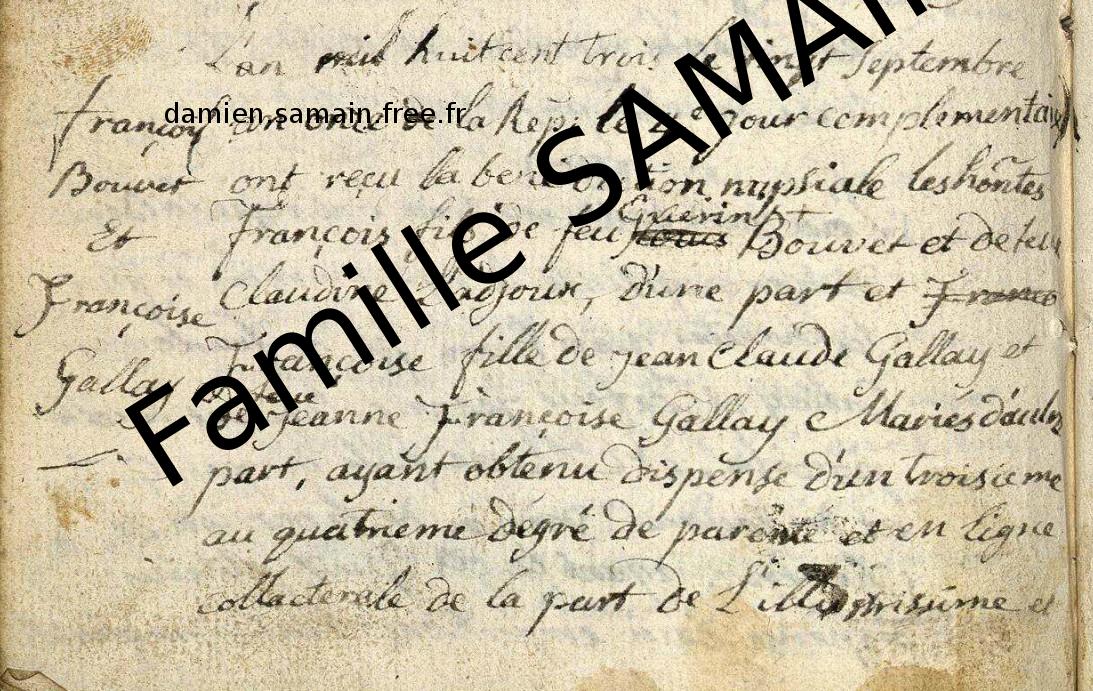 L'an mil huit cent trois le vingt Septembre
damien.samain.free.fr
Famille SAMAIN
an onze de la Rep: le 4e jour complementair
ont reçu la benediction nupsiale les hõntes
Guerin
François fils de feu Louis Bouvet et de feue
Claudine d'une part et Franço
Françoise fille de jean Claude Gallay et
feue
de Jeanne Françoise Gallay Mariés d'autre
part, ayant obtenu dispense d'un troisieme
au quatrieme degré de parenté et en ligne
collacterale de la part de L'illustrissime et
François
Bouvet
Et
Françoise
Gallay